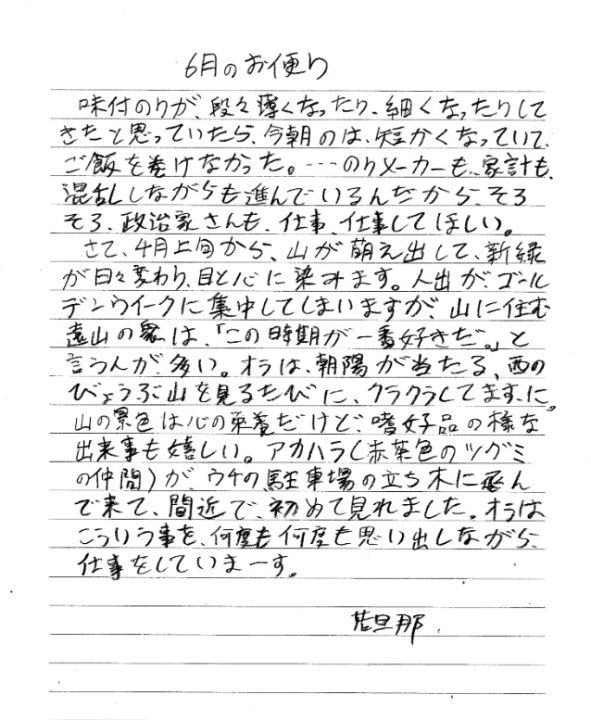 6月のお便り
味付のりが、段々薄くなったり、細くなったりして
きたと思っていたら、今朝のは、短かくなっていて、
ご飯を巻けなかった。…のりメーカーも、家計も、
混乱しながらも進んでいるんだから、そろ
そろ、政治家さんも、仕事、仕事してほしい。
さて、4月上旬から、山が萌え出して、新緑
が日々変わり、目と心に染みます。人出が、ゴール
デンウイークに集中してしまいますが、山に住む
遠山の衆は、「この時期が一番好きだ。」と
言うんが、多い。オラは、朝陽が当たる、西の
びょうぶ山を見るたびに、クラクラしてますに。
山の景色は心の栄養だけど、嗜好品の様な
出来事も嬉しい。アカハラ(赤茶色のツグミ
の仲間)が、ウチの駐車場の立ち木に飛ん
で来て、間近で、初めて見れました。オラは
こういう事を、何度も何度も思い出しながら、
仕事をしていまーす。
旦那.